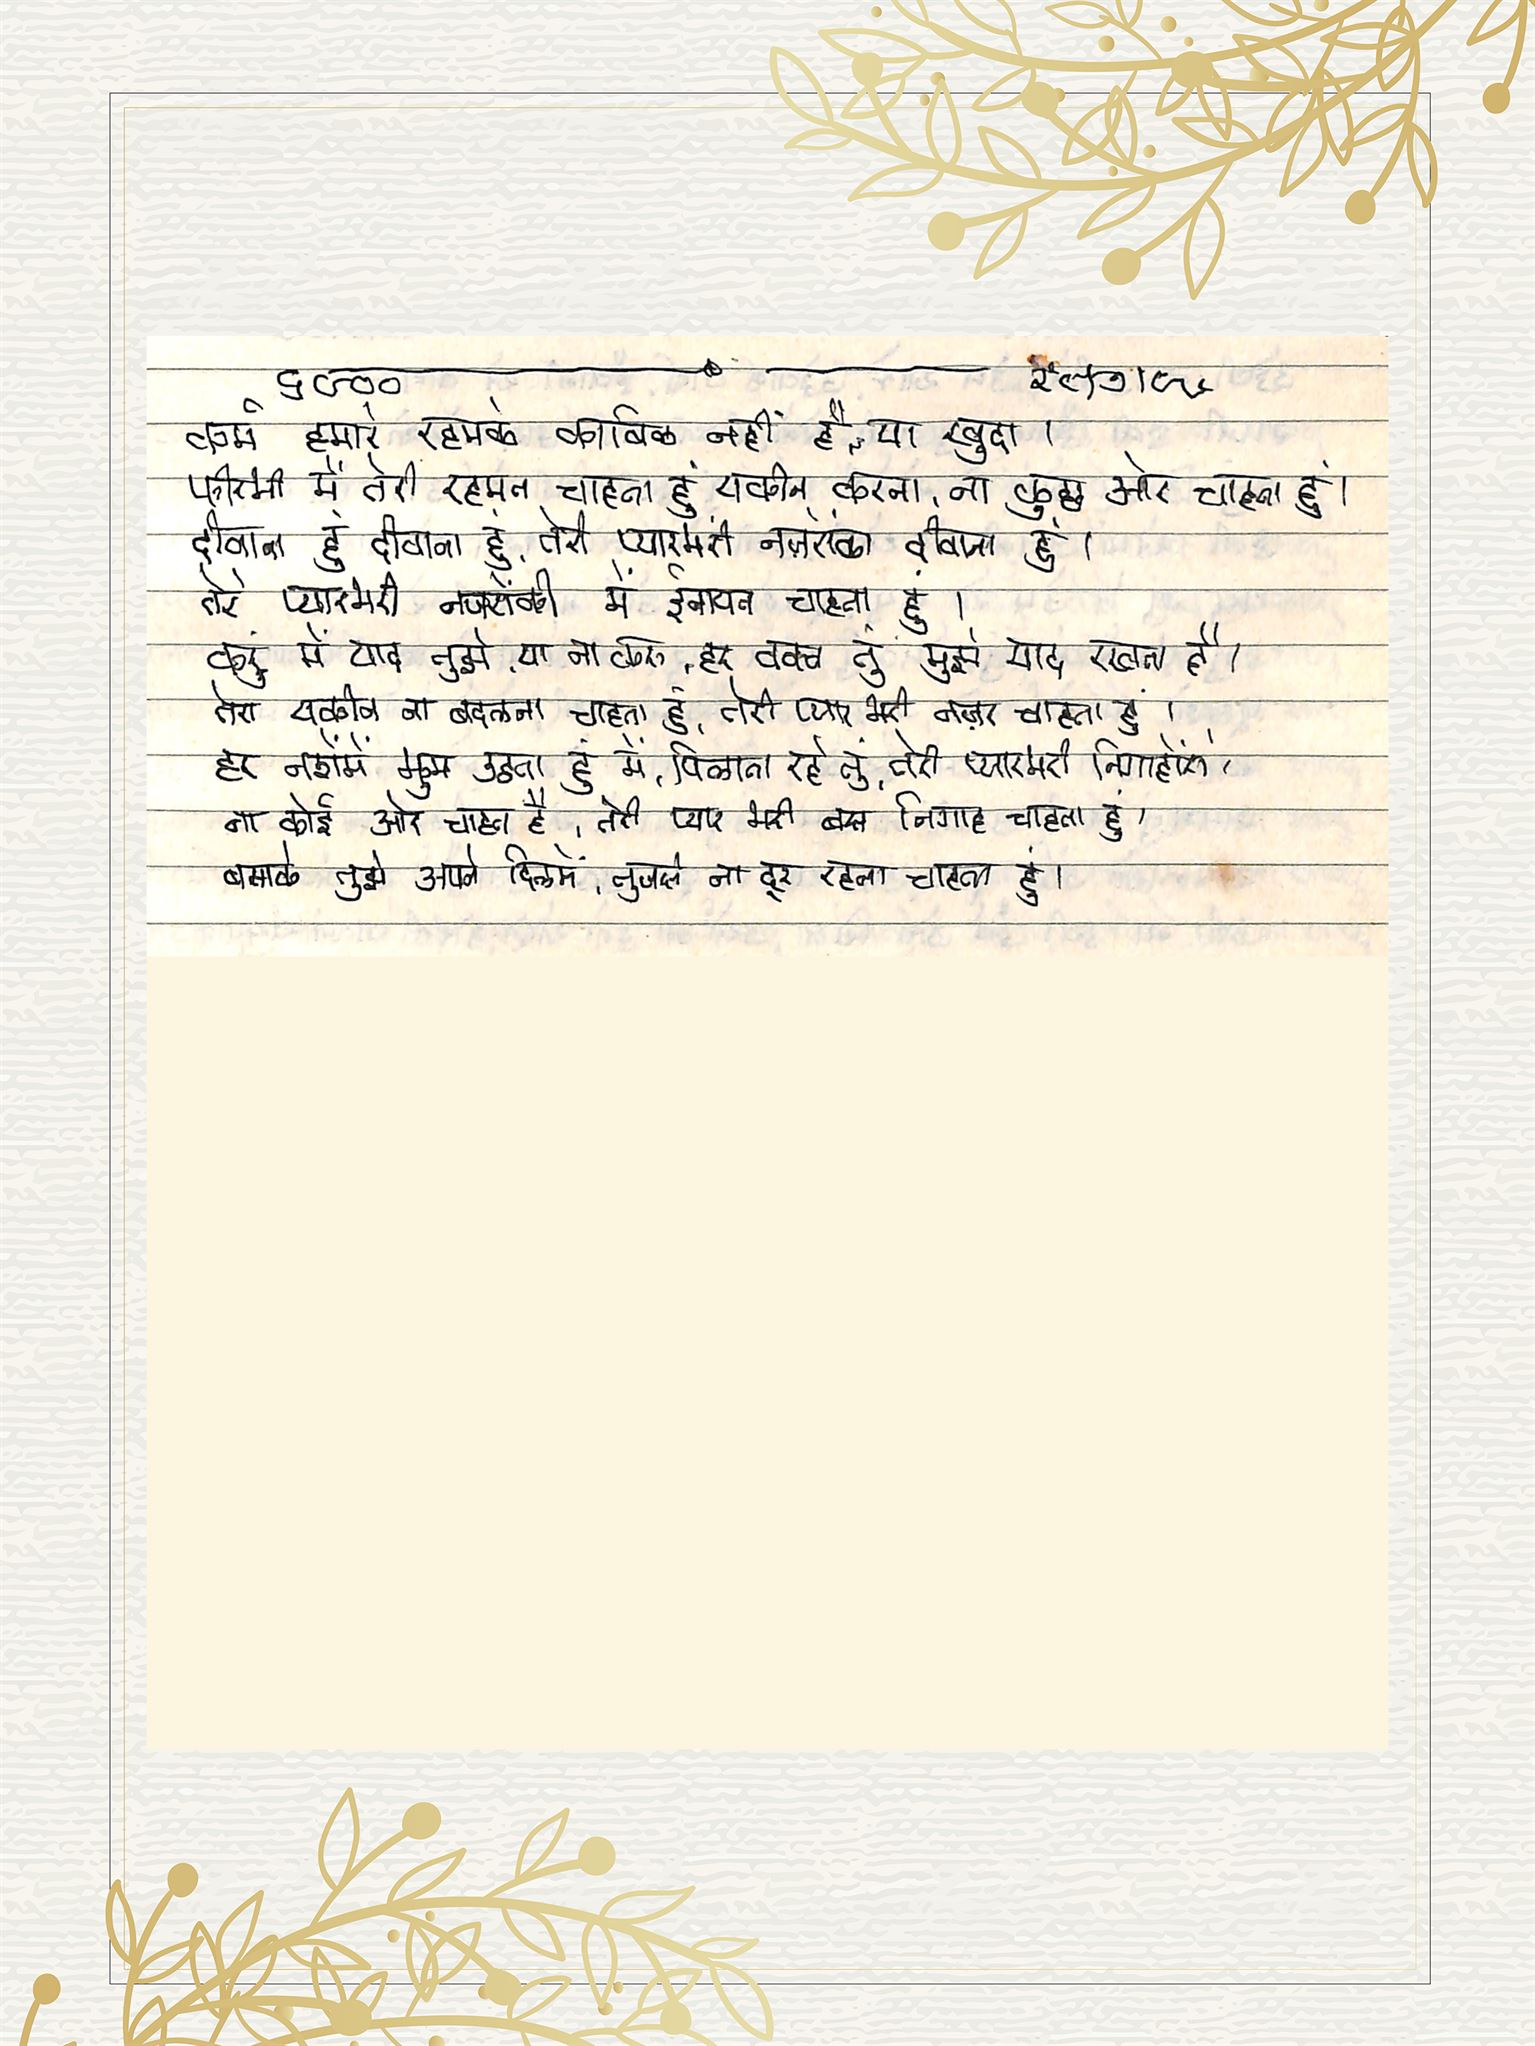 कर्म हमारे रहमके काबिल नहीं है, या खुदा ।
फीरभी मैं तेरी रहमत चाहता हुं यकीन करना, ना कुछ ओर चाहता हुं ।
दीवाना हुं दीवाना हुं, तेरी प्यारभरी नज़रोंका दीवाना हुं ।
तेरे प्यारभरी नजरोंकी में ईनायत चाहता हुं ।
करुं में याद तुझे, या ना करु, हर वक्त तुं मुझे याद रखता है ।
तेरा यकीन ना बदलना चाहता हुं, तेरी प्यार भरी नज़र चाहता हुं ।
हर नशेमें झुम उठता हुं में, पिलाता रहे तुं, तेरी प्यारभरी निगाहोंसे,
ना कोई ओर चाहत है, तेरी प्यार भरी बस निगाह चाहता हुं,
बसाके तुझे अपने दिलमें, तुजसे ना दूर रहना चाहता हुं ।